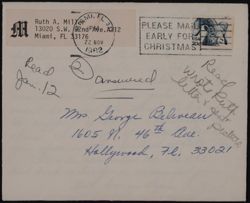 M
Ruth A. Miller
13020 S.W. 92nd Ave. A212
Miami, FL 33176
MIAMI, FL
PM
22 NOV
1982
PLEASE MAIL
EARLY FOR
CHRISTMAS
Read
Jan. 12
answered
Read
Wrote Ruth
letter & sent
picture
Mrs George Beliveau
1605 N. 46th Ave.
Hollywood, Fl. 33021